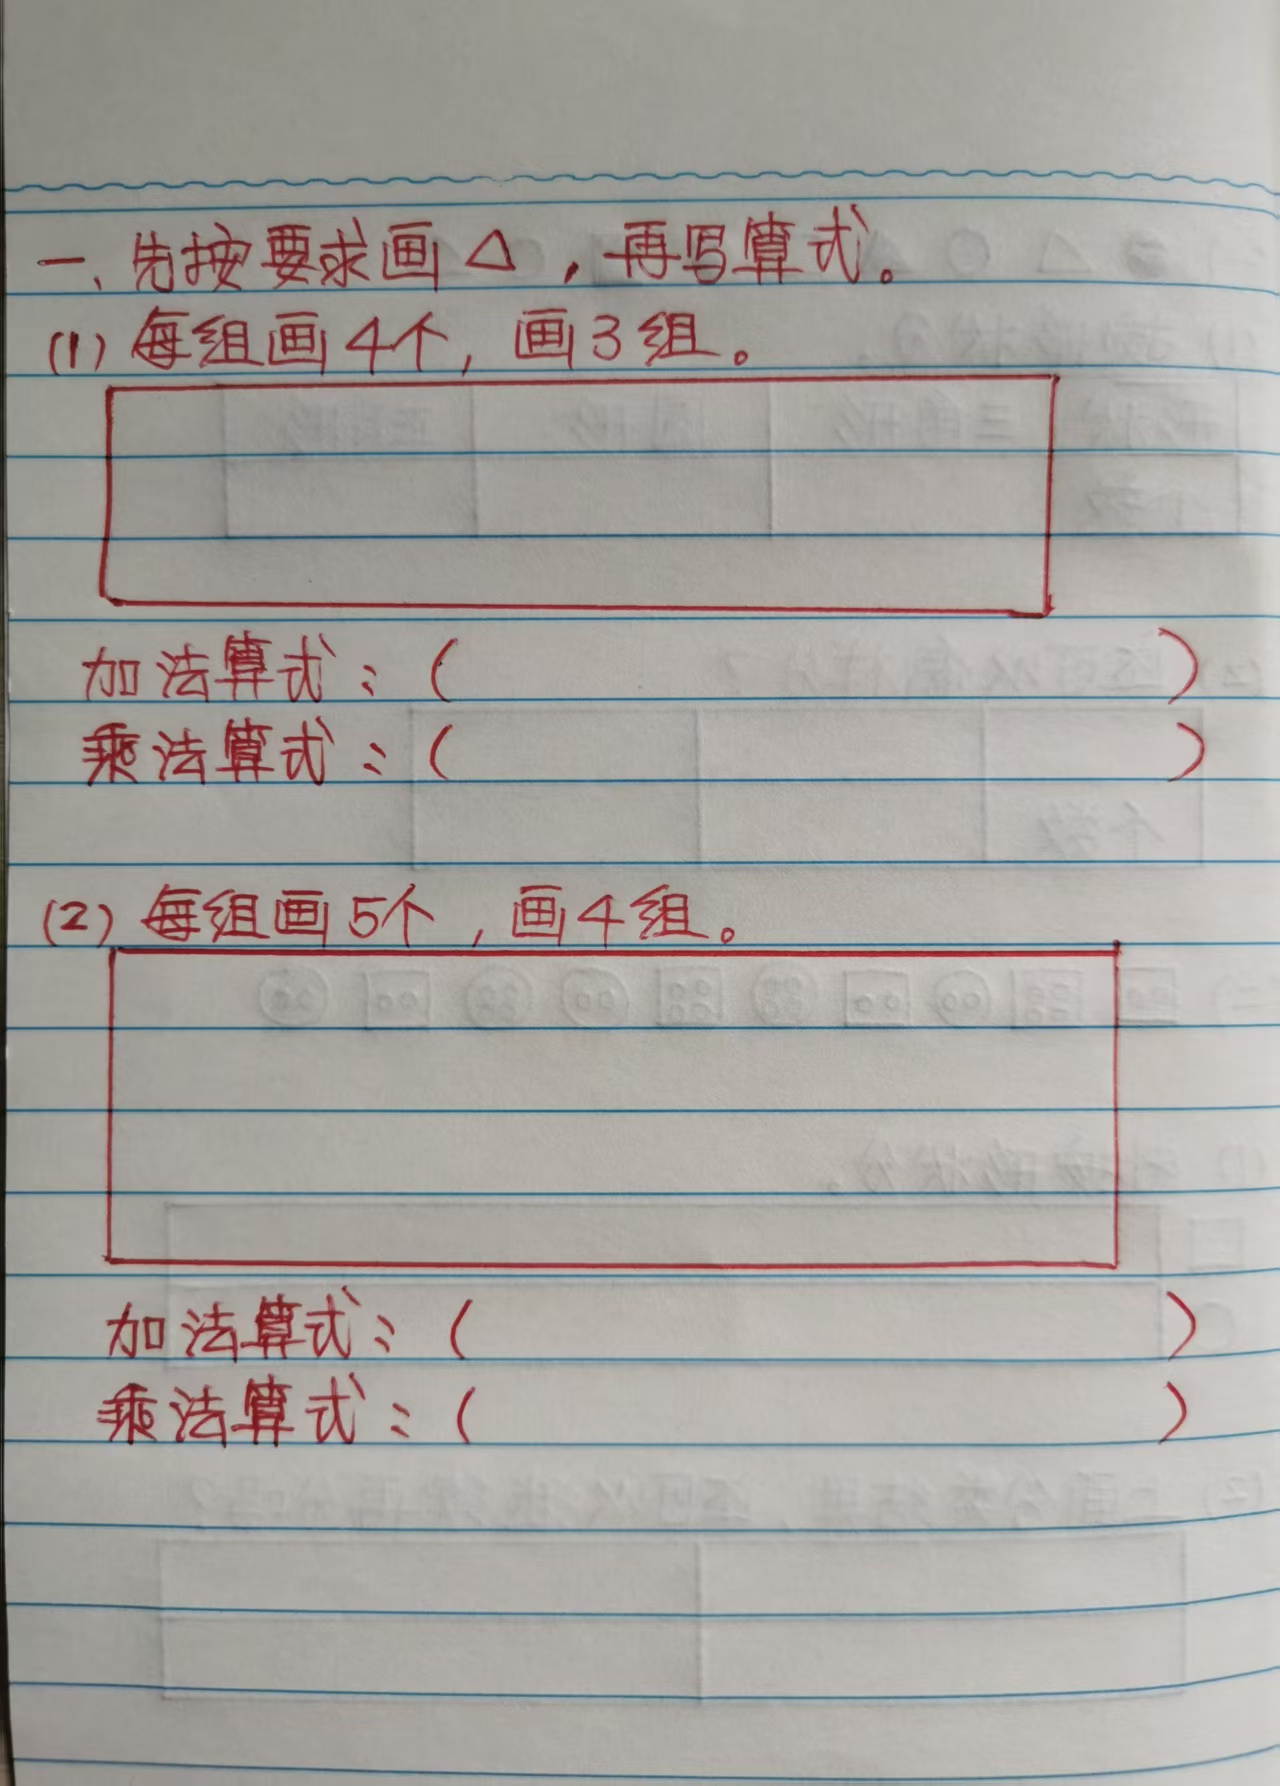 一、先按要求画△，再写算式。
(1) 每组画4个，画3组。
加法算式：(                    )
乘法算式：(                    )
(2) 每组画5个，画4组。
加法算式：(                    )
乘法算式：(                    )